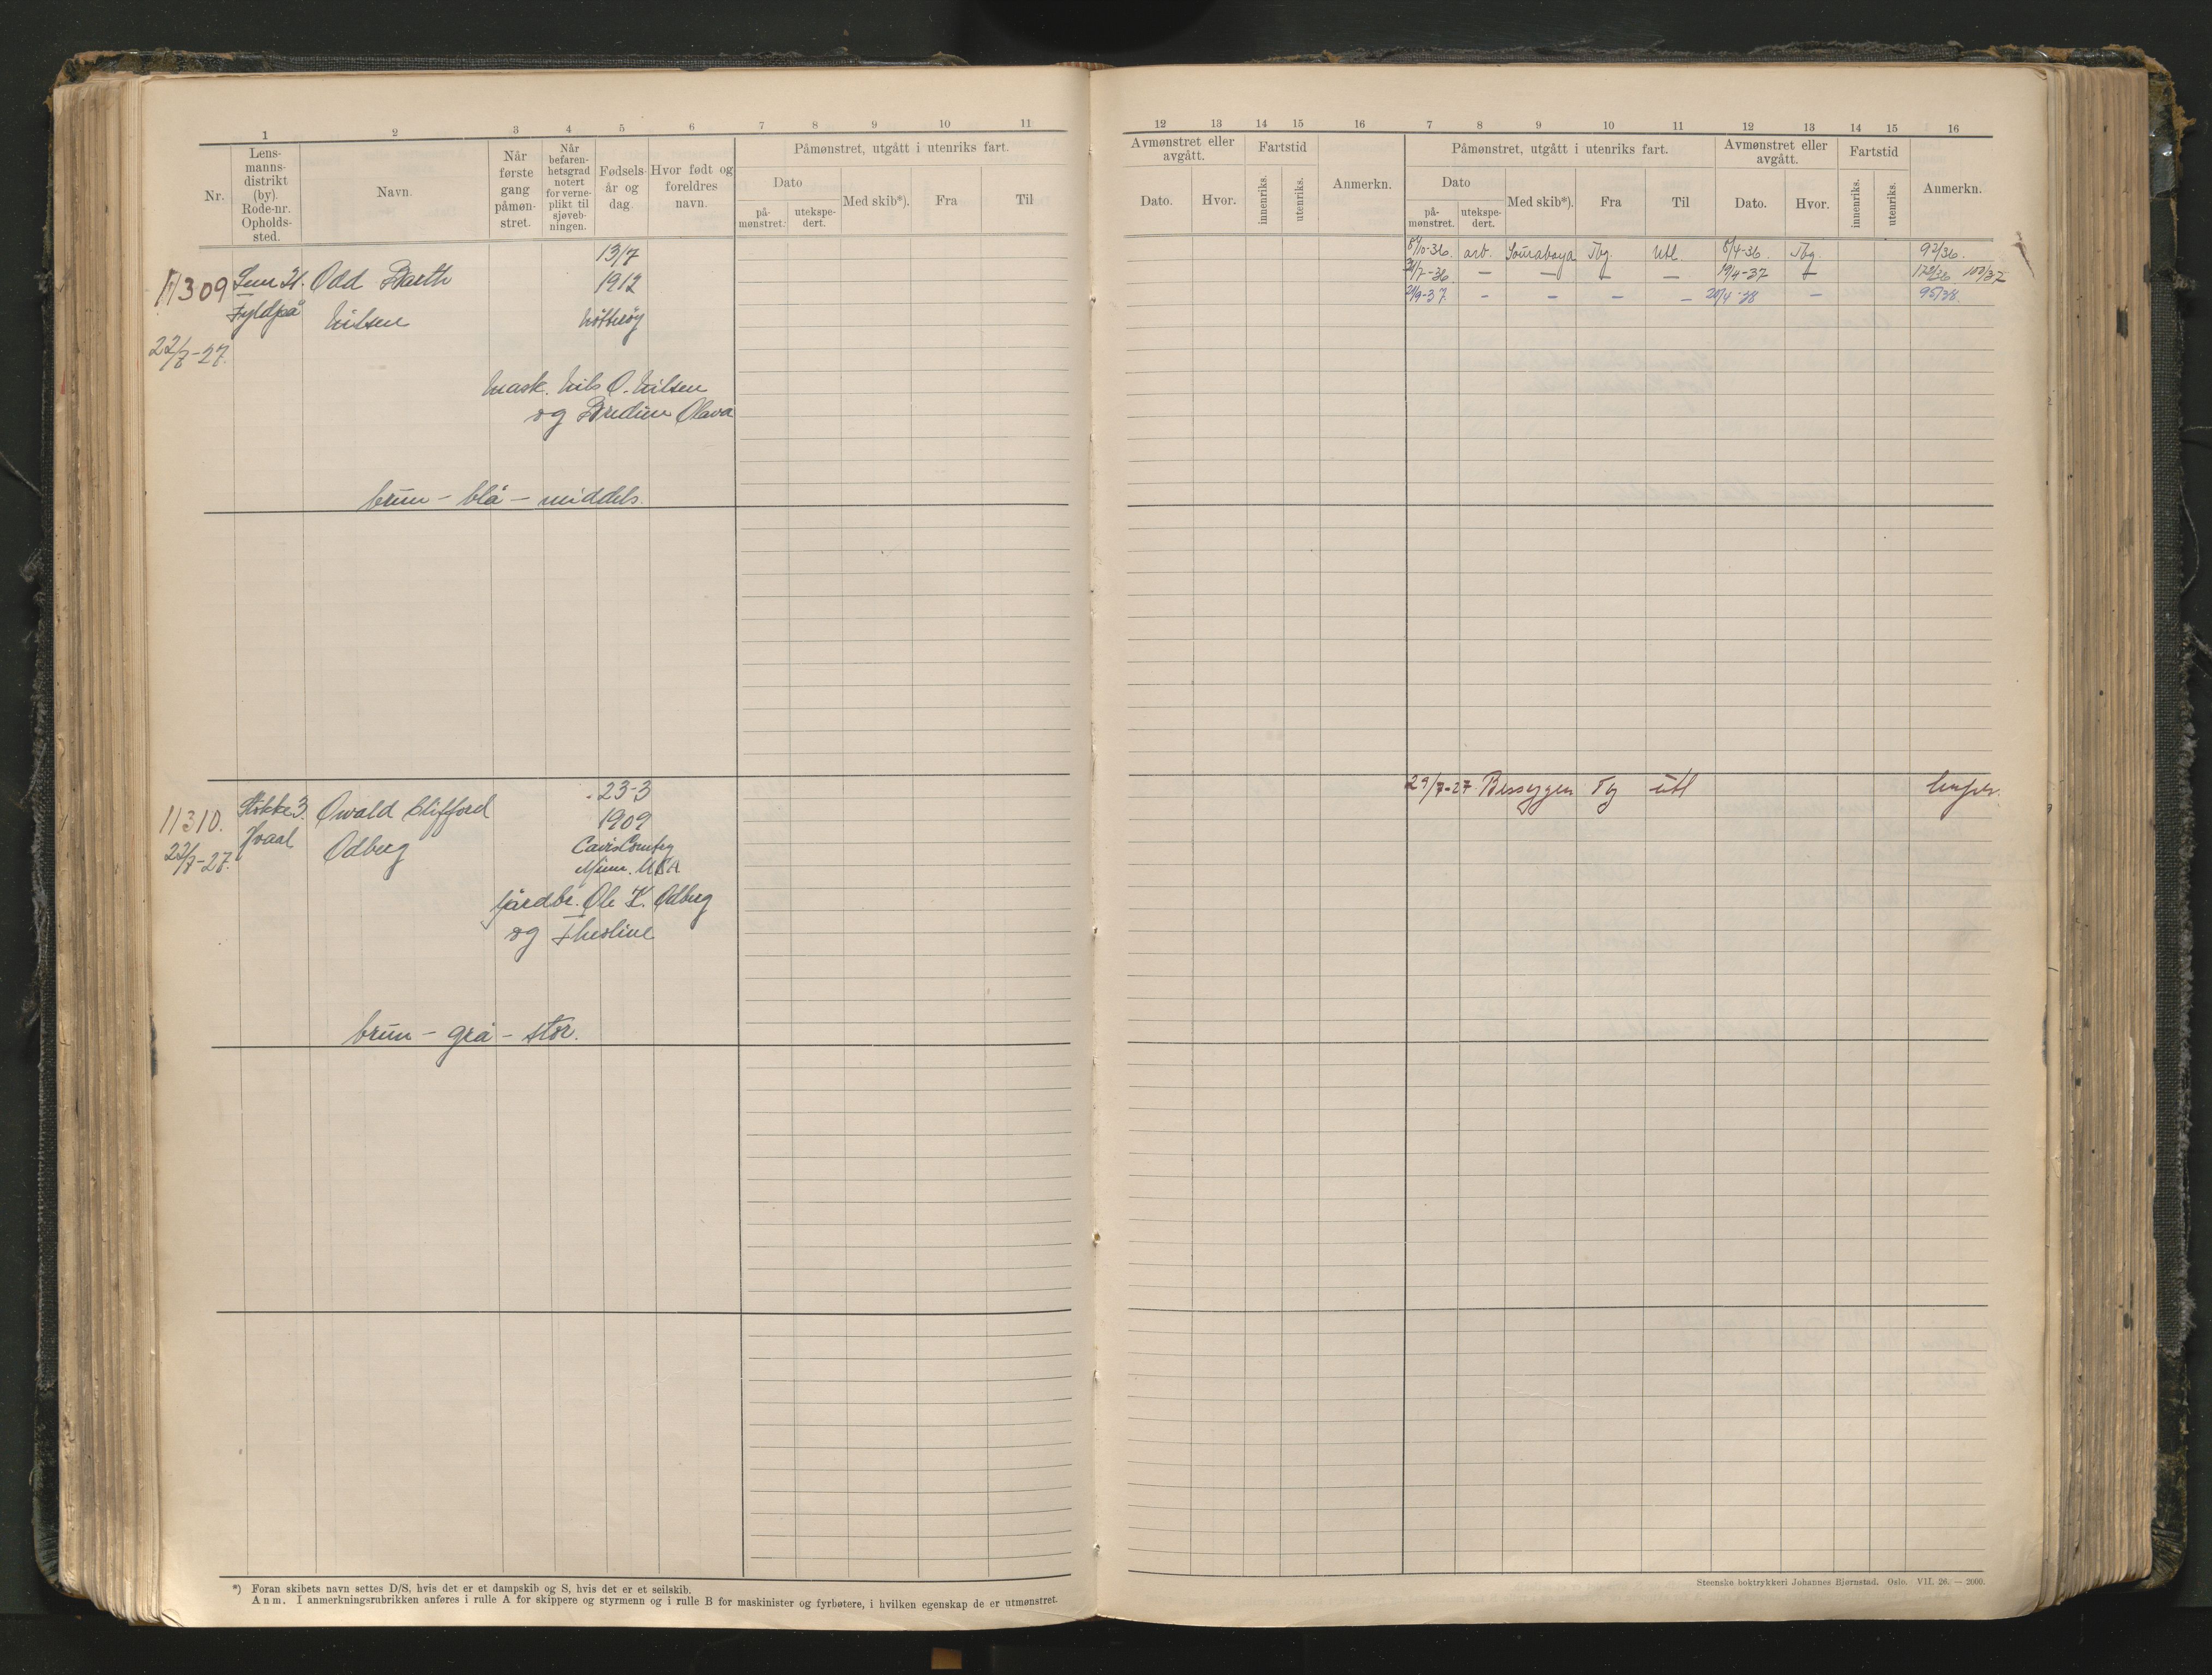 1 2 3 4 5 6 7 8 9 10 11
Nr.
Lens-
manns-
distrikt
(by).
Rode-nr.
Opholds-
sted.
Navn.
Når
første
gang
påmøn-
stret.
Når
befaren-
hetsgrad
notert
for verne-
plikt til
sjøveb-
ningen.
Fødsels-
år og
dag.
Hvor født og
foreldres
navn.
Påmønstret, utgått i utenriks fart.
Dato
på-
mønstret.
utekspe-
dert.
Med skib*).
Fra
Til
11309 Sem 21. Odd Barth 13/7
1912
Fyldpå Nilsen Nøtterøy
22/7-27.
Mask. Nils O. Nilsen
og Bredine Olava
brun - blå - middels.
11310. Stokke 3. Owald Clifford 23-3
1909
Hvaal Odberg
22/7-27.
Minn. USA
jordbr. Ole K. Odberg
og Theoline
brun - grå - stor.
*) Foran skibets navn settes D/S, hvis det er et dampskib og S, hvis det er et seilskib.
Anm. I anmerkningsrubrikken anføres i rulle A for skippere og styrmenn og i rulle B for maskinister og fyrbøtere, i hvilken egenskap de er utmønstret.
12 13 14 15 16 7 8 9 10 11 12 13 14 15 16
Avmønstret eller
avgått.
Dato.
Hvor.
Fartstid
innenriks.
utenriks.
Anmerkn.
Påmønstret, utgått i utenriks fart.
Dato
på-
mønstret.
utekspe-
dert.
Med skib*).
Fra
Til
Avmønstret eller
avgått.
Dato.
Hvor.
Fartstid
innenriks.
utenriks.
Anmerkn.
8/10-36. arb. Sourabaya Tbg. Utl. 8/4-36. Tbg. 92/36.
24/7-36. — — — — 19/4-37 — 172/36 100/37
21/9-37. - - - - 20/4-38 - 95/38.
29/7-27 Besseggen Tg utl
Steenske boktrykkeri Johannes Bjørnstad. Oslo. VII. 26. — 2000.